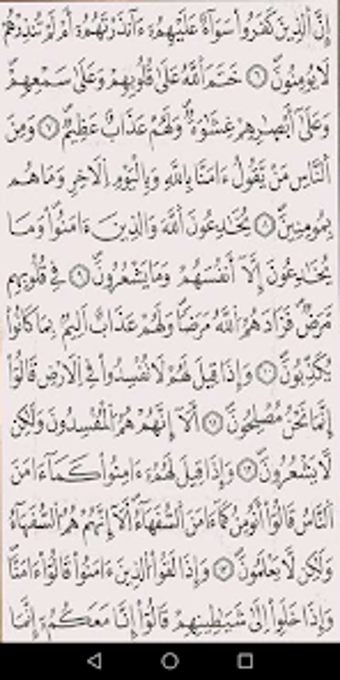 إِنَّ ٱلذِينَ كَفَرُواْ سَوَآءٌ عَلَيْهِمُۥٓ ءَآنذَرْتَهُمُۥٓ أَمْ لَمْ تُنذِرْهُمْ
لَا يُومِنُونَ ۝٦ خَتَمَ ٱللَّهُ عَلَىٰ قُلُوبِهِمْ وَعَلَىٰ سَمْعِهِمْ
وَعَلَىٰٓ أَبْصَٰرِهِمْ غِشَٰوَةٌ وَلَهُمْ عَذَابٌ عَظِيمٌ ۝٧ وَمِنَ
ٱلنَّاسِ مَنْ يَّقُولُ ءَامَنَّا بِاللَّهِ وَبِالْيَوْمِ اِلَاخِرِ وَمَا هُم
بِمُومِنِينَ ۝٨ يُخَٰدِعُونَ ٱللَّهَ وَالذِينَ ءَامَنُواْ وَمَا
يُخَٰدِعُونَ إِلَّآ أَنفُسَهُمْ وَمَا يَشْعُرُونَ ۝٩ فِے قُلُوبِهِم
مَّرَضٌ فَزَادَهُمُ ٱللَّهُ مَرَضاً وَلَهُمْ عَذَابٌ اَلِيمٌ بِمَا كَانُواْ
يُكَذِّبُونَ ۝١٠ وَإِذَا قِيلَ لَهُمْ لَا تُفْسِدُواْ فِے اِلَارْضِ قَالُوٓاْ
إِنَّمَا نَحْنُ مُصْلِحُونَ ۝١١ أَلَآ إِنَّهُمْ هُمُ ٱلْمُفْسِدُونَ وَلَٰكِن
لَّا يَشْعُرُونَ ۝١٢ وَإِذَا قِيلَ لَهُمُۥٓ ءَامِنُواْ كَمَآ ءَامَنَ
ٱلنَّاسُ قَالُوٓاْ أَنُومِنُ كَمَآ ءَامَنَ ٱلسُّفَهَآءُ أَلَآ إِنَّهُمْ هُمُ ٱلسُّفَهَآءُ
وَلَٰكِن لَّا يَعْلَمُونَ ۝١٣ وَإِذَا لَقُواْ ٱلذِينَ ءَامَنُواْ قَالُوٓاْ ءَامَنَّا
وَإِذَا خَلَوِاْ اِلَىٰ شَيَٰطِينِهِمْ قَالُوٓاْ إِنَّا مَعَكُمُۥٓ إِنَّمَا